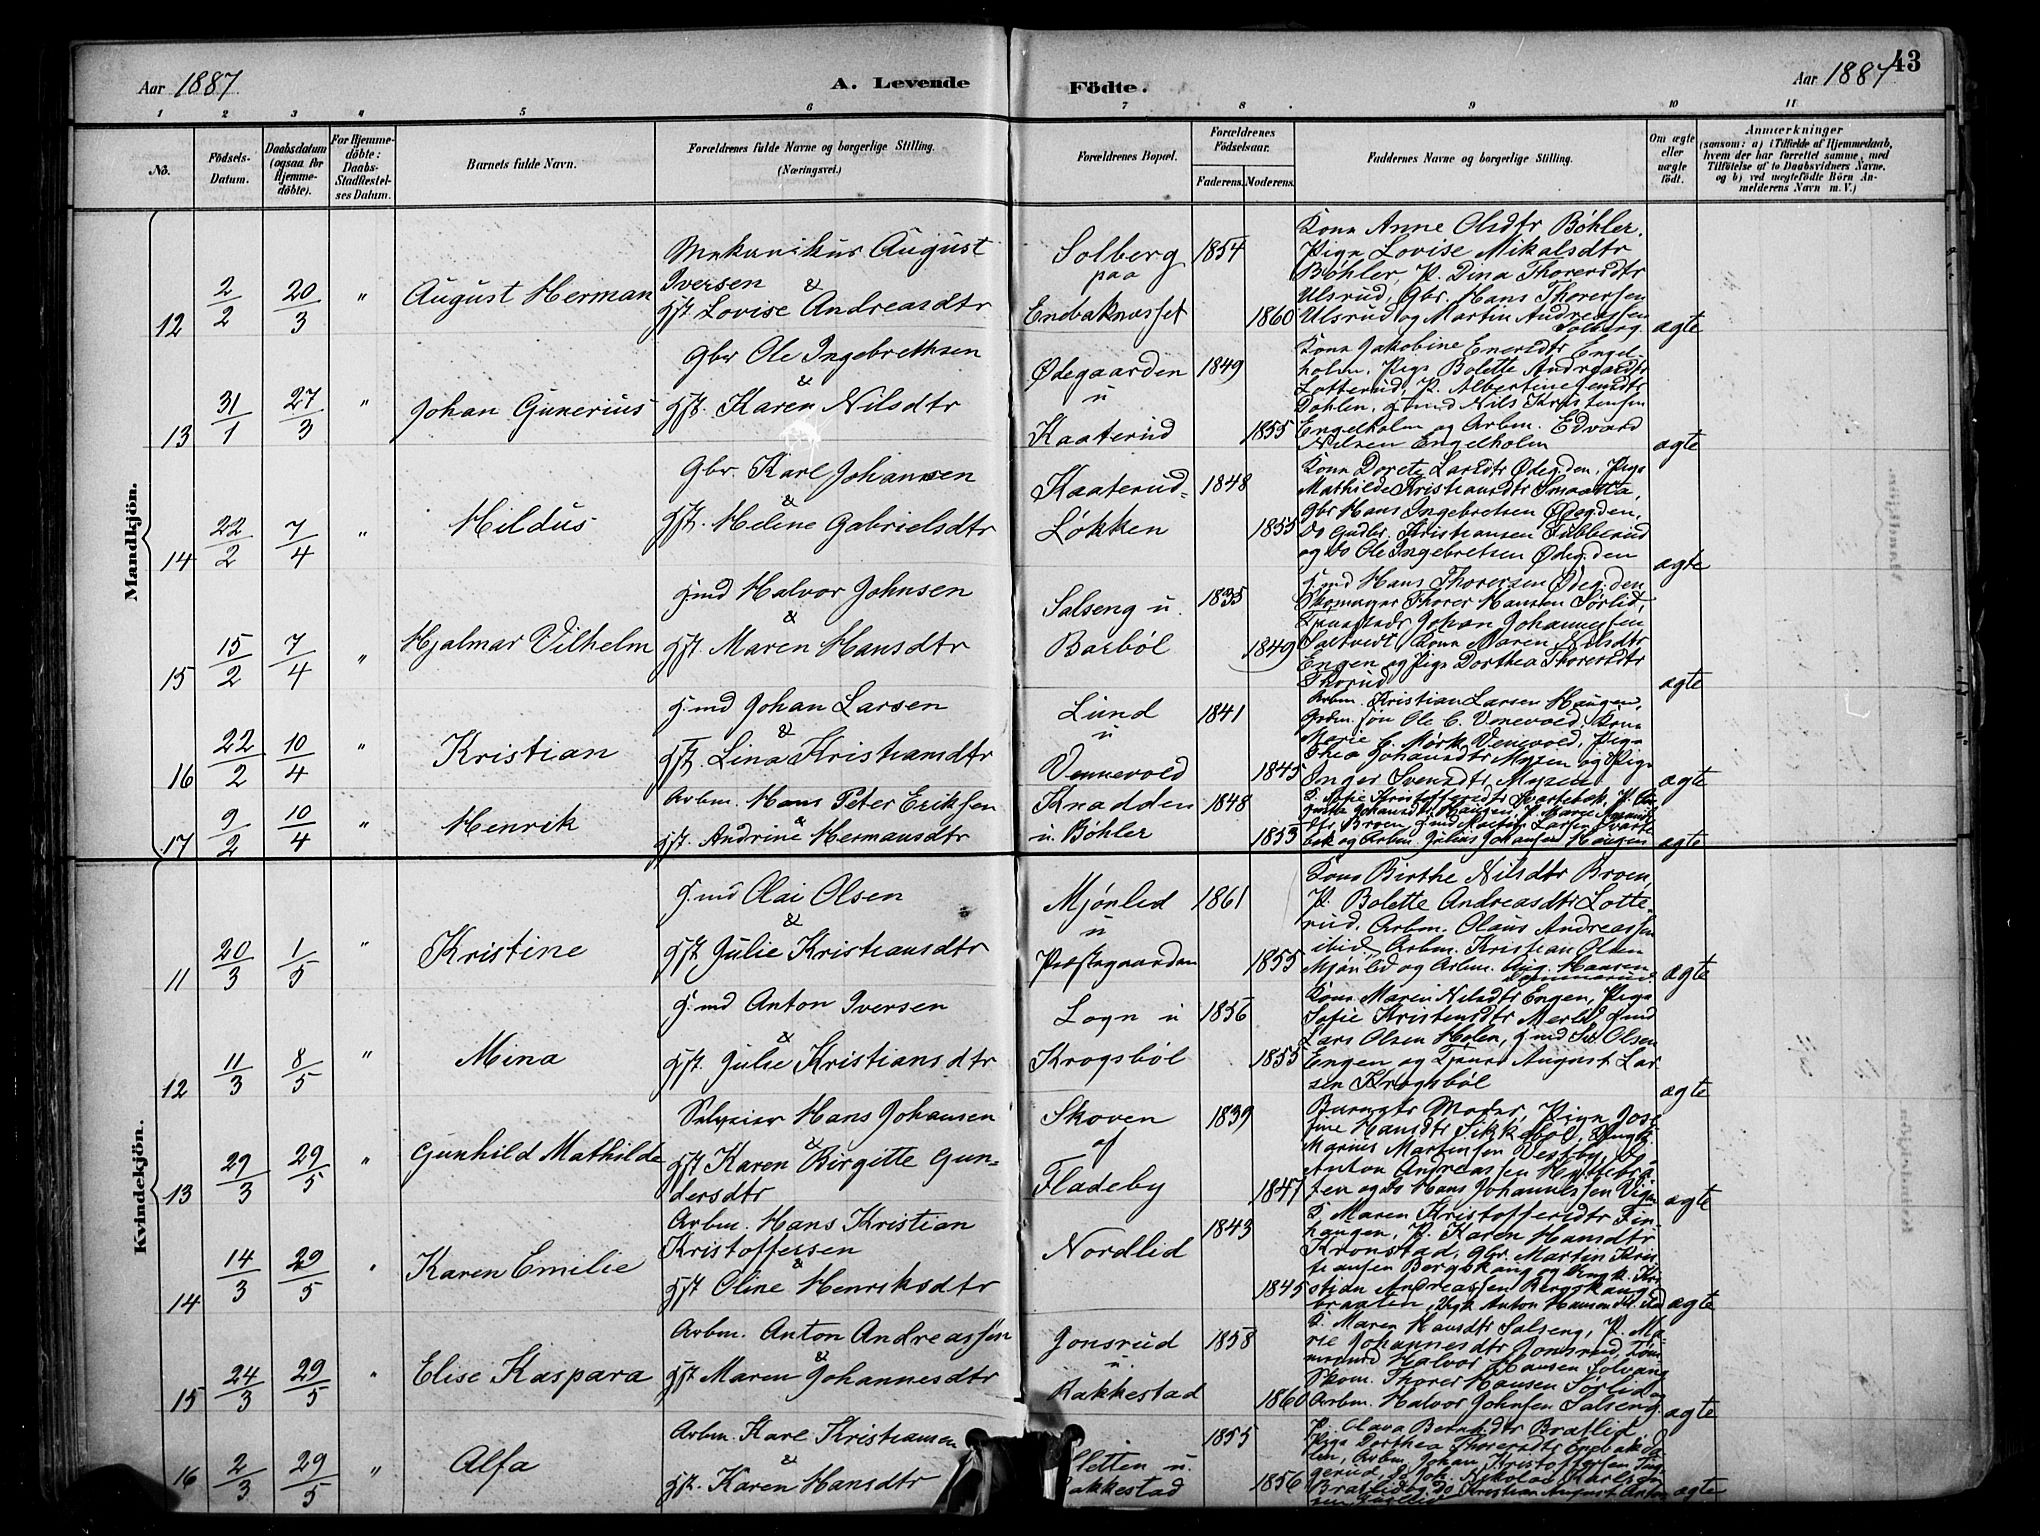 Aar 1887
A. Levende
Födte.
Aar 1887
43
1 2 3 4 5 6 7 8 9 10 11
No.
Födsels-
Datum.
Daabsdatum
(ogsaa for
Hjemme-
döbte).
For Hjemme-
döbte:
Daabs-
Stadfæstel-
ses Datum.
Barnets fulde Navn.
Forældrenes fulde Navne og borgerlige Stilling.
(Næringsvei.)
Forældrenes Bopæl.
Forældrenes
Födselsaar.
Faderens. Moderens.
Faddernes Navne og borgerlige Stilling.
Om ægte
eller
uægte
födt.
Anmærkninger
(saasom: a) i Tilfælde af Hjemmedaab,
hvem der har forrettet samme, med
Tilföielse af to Daabsvidners Navne,
og b) ved uægtefödte Börn An-
melderens Navn m. V.)
Mandkjön.
12
2/2
20/3
"
August Herman
Mekanikus August
Iversen &
gft Lovise Andreasdtr
Solberg
paa
Enebaknæsset
1854
1860
Kona Anne Olsdtr Bøhler,
Pign Lovise Mikalsdtr
Bøhler, P. Dina Thorersdtr
Ulsrud, Gbr. Hans Thorersen
Ulsrud og Martin Andreassen
Solberg
ægte
13
31/1
27/3
"
Johan Gunerius
Gbr Ole Ingebrethsen
&
gft. Karen Nilsdtr
Ødegaarden
u
Kaaterud
1849
1855
Kona Jakobine Enersdtr Engel-
holm, Pige Bolette Andreasdtr
Lotterud, P. Albertine Jensdtr
Dahlen, Gmd Nils Kristensen
Engelholm og Arbm. Edvard
Nilsen Engelholm
ægte
14
22/2
7/4
"
Hildus
Gbr. Karl Johansen
&
gft. Helene Gabrielsdtr
Kaaterud-
Løkken
1848
1855
Kona Dorete Larsdtr Ødeg.den, Pige
Mathilde Kristiansdtr
Gbr Hans Ingebretsen Ødeg.den,
Do Gudbr. Kristiansen Tubberud
og Do Ole Ingebretsen Ødeg.den
ægte
15
15/2
7/4
"
Hjalmar Vilhelm
G.md Halvor Johnsen
&
gft. Maren Hansdtr
Salseng u.
Barbøl
1835
1849
G.md Hans Thorersen Ødeg.den
Skomager Thorer Hansen Sørlid,
Johan Johannessen
Saltvedt, Kona Maren Nilsdtr
Engen og Pige Dorthea Thorersdtr
Thorud
ægte
16
22/2
10/4
"
Kristian
G.md Johan Larsen
&
gft. Lina Kristiansdtr
Lund
u
Vennevold
1841
1845
Arbm. Kristian Larsen Haugen,
Ole C. Venevold, Kona
Marie C. Mørk Venevold, Pige
Thea Johansdtr Mysen og Pige
Inger Svensdtr Mysen
ægte
17
9/2
10/4
"
Henrik
Arbm. Hans Peter Eriksen
&
gft. Andrine Hermansdtr
Knadden
u. Bøhler
1848
1853
Sofie Kristoffersdtr Svartebek,
bek og Arbm. Julius Johansen Haugen
ægte
Kvindekjön.
11
20/3
1/5
"
Kristine
G.md Olai Olsen
&
gft Julie Kristiansdtr
Mjønlid
u
Præstegaarden
1861
1855
Kona Birthe Nilsdtr Broen,
P. Bolette Andreasdtr Lotte-
rud, Arbm. Olaus Andreassen
ibid, Arbm. Kristian Olsen
Mjønlid og Arbm. Aug. Hansen
ægte
12
11/3
8/5
"
Mina
G.md Anton Iversen
&
gft. Julie Kristiansdtr
Logn u
Krogsbøl
1856
1855
Kona Maren Nilsdtr Engen, Pige
Sofie Kristensdtr Merlid, Gmd
Lars Olsen Holen, Gmd Olsen
Engen og August Lar-
sen Krogsbøl
ægte
13
29/3
29/5
"
Gunhild Mathilde
Selveier Hans Johansen
&
gft Karen Birgitte Gun-
dersdtr
Skoven
af
Fladeby
1839
1847
Barnets Moder, Pigen Jose-
fine Hansdtr Sikkebøl, Ungk.
Marius Martinsen Vestby, Do
Anton Andreassen Hyttebra-
ten og Do Hans Johannessen Vig
ægte
14
14/3
29/5
"
Karen Emilie
Arbm. Hans Kristian
Kristoffersen
&
gft Oline Henriksdtr
Nordlid
1843
1845
Maren Kristoffersdtr Fin-
haugen, P. Karen Hansdtr
Kronstad, Gbr. Martin Kris-
tiansen Bergskaug og Ungk. Kri-
stian Andreassen Bergskaug-
braaten, Ungk Anton Hansen
ægte
15
24/3
29/5
"
Elise Kaspara
Arbm. Anton Andreassen
&
gft Maren Johannesdtr
Jonsrud
u.
Rakkestad
1858
1860
Maren Hansdtr Salseng, P. Ma-
rie Johannesdtr Jonsrud, Tøm-
mermd Halvor Hansen Solvang
Skom. Thorer Hansen Sørlid og
Arbm. Halvor Johnsen Salseng
ægte
16
2/3
29/5
"
Alfa
Arbm. Karl Kristiansen
&
gft. Karen Hansdtr
Sletten u.
Rakkestad
1855
1856
P. Olava Berntsdtr Bratlid
Pige Dorthea Thorersdtr Enebakda-
len, Arbm Johan Kristoffersen
Nikolai Karlsen
Bratlid og Do Kristian August Anton
ægte